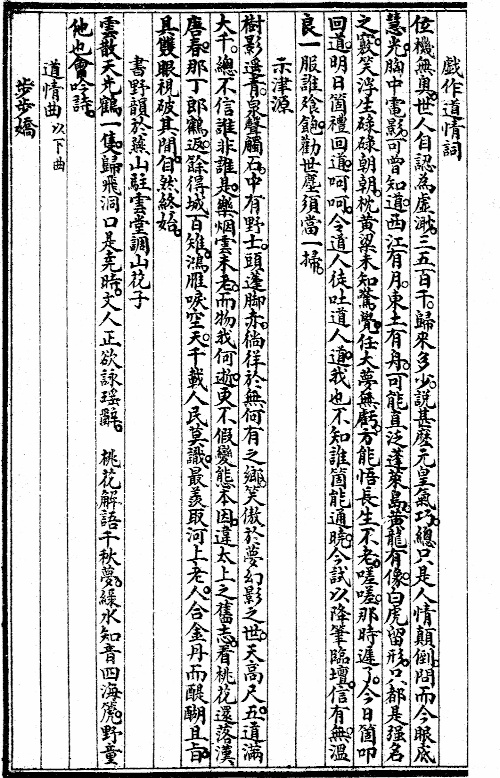 戲作道情詞
位機無臭。世人自認爲虛渺。三五百千。歸來多少。說甚麽元皇氣巧。總只是人情顛倒。問而今眼底
慧光。胸中電影。可曾知道。西江有月。東土有舟。可能直泛蓬萊島。黃龍有像。白虎留形。只都是强名
之竅。笑浮生碌碌朝朝。枕黃粱未知驚覺。任大夢無虧。方能悟長生不老。嗟嗟。那時遲了。今日箇叩
回道。明日箇禮回道。呵呵。今道人徒吐道人道。我也不知誰箇能通曉。今試以降筆臨壇。信有無。溫
良一服誰飱飽。勸世塵須當一掃。
示津源
樹影遥青。泉聲觸石。中有野士。頭蓬脚赤。徜徉於無何有之鄉。笑傲於夢幻影之世。天高尺五。道滿
大千。總不信誰非誰是。藥烟雲未老。而物我何逝。更不假變態。本因違太上之舊志。看桃花還落漢
唐春。那丁郎鶴返。餘得城百雉。鴻雁唳空。天千載人民莫識。最羨取河上老。人合金丹而醍醐且旨。
具雙眼視破其間。自然終始。
書野韻於蒸山駐雲堂調山花子
雲散天光鶴一隻。歸飛洞口是堯時。文人正欲詠瑤辭。　桃花解語千秋夢。綠水知音四海麓。野童
他也會吟詩。
道情曲以下曲
步步嬌